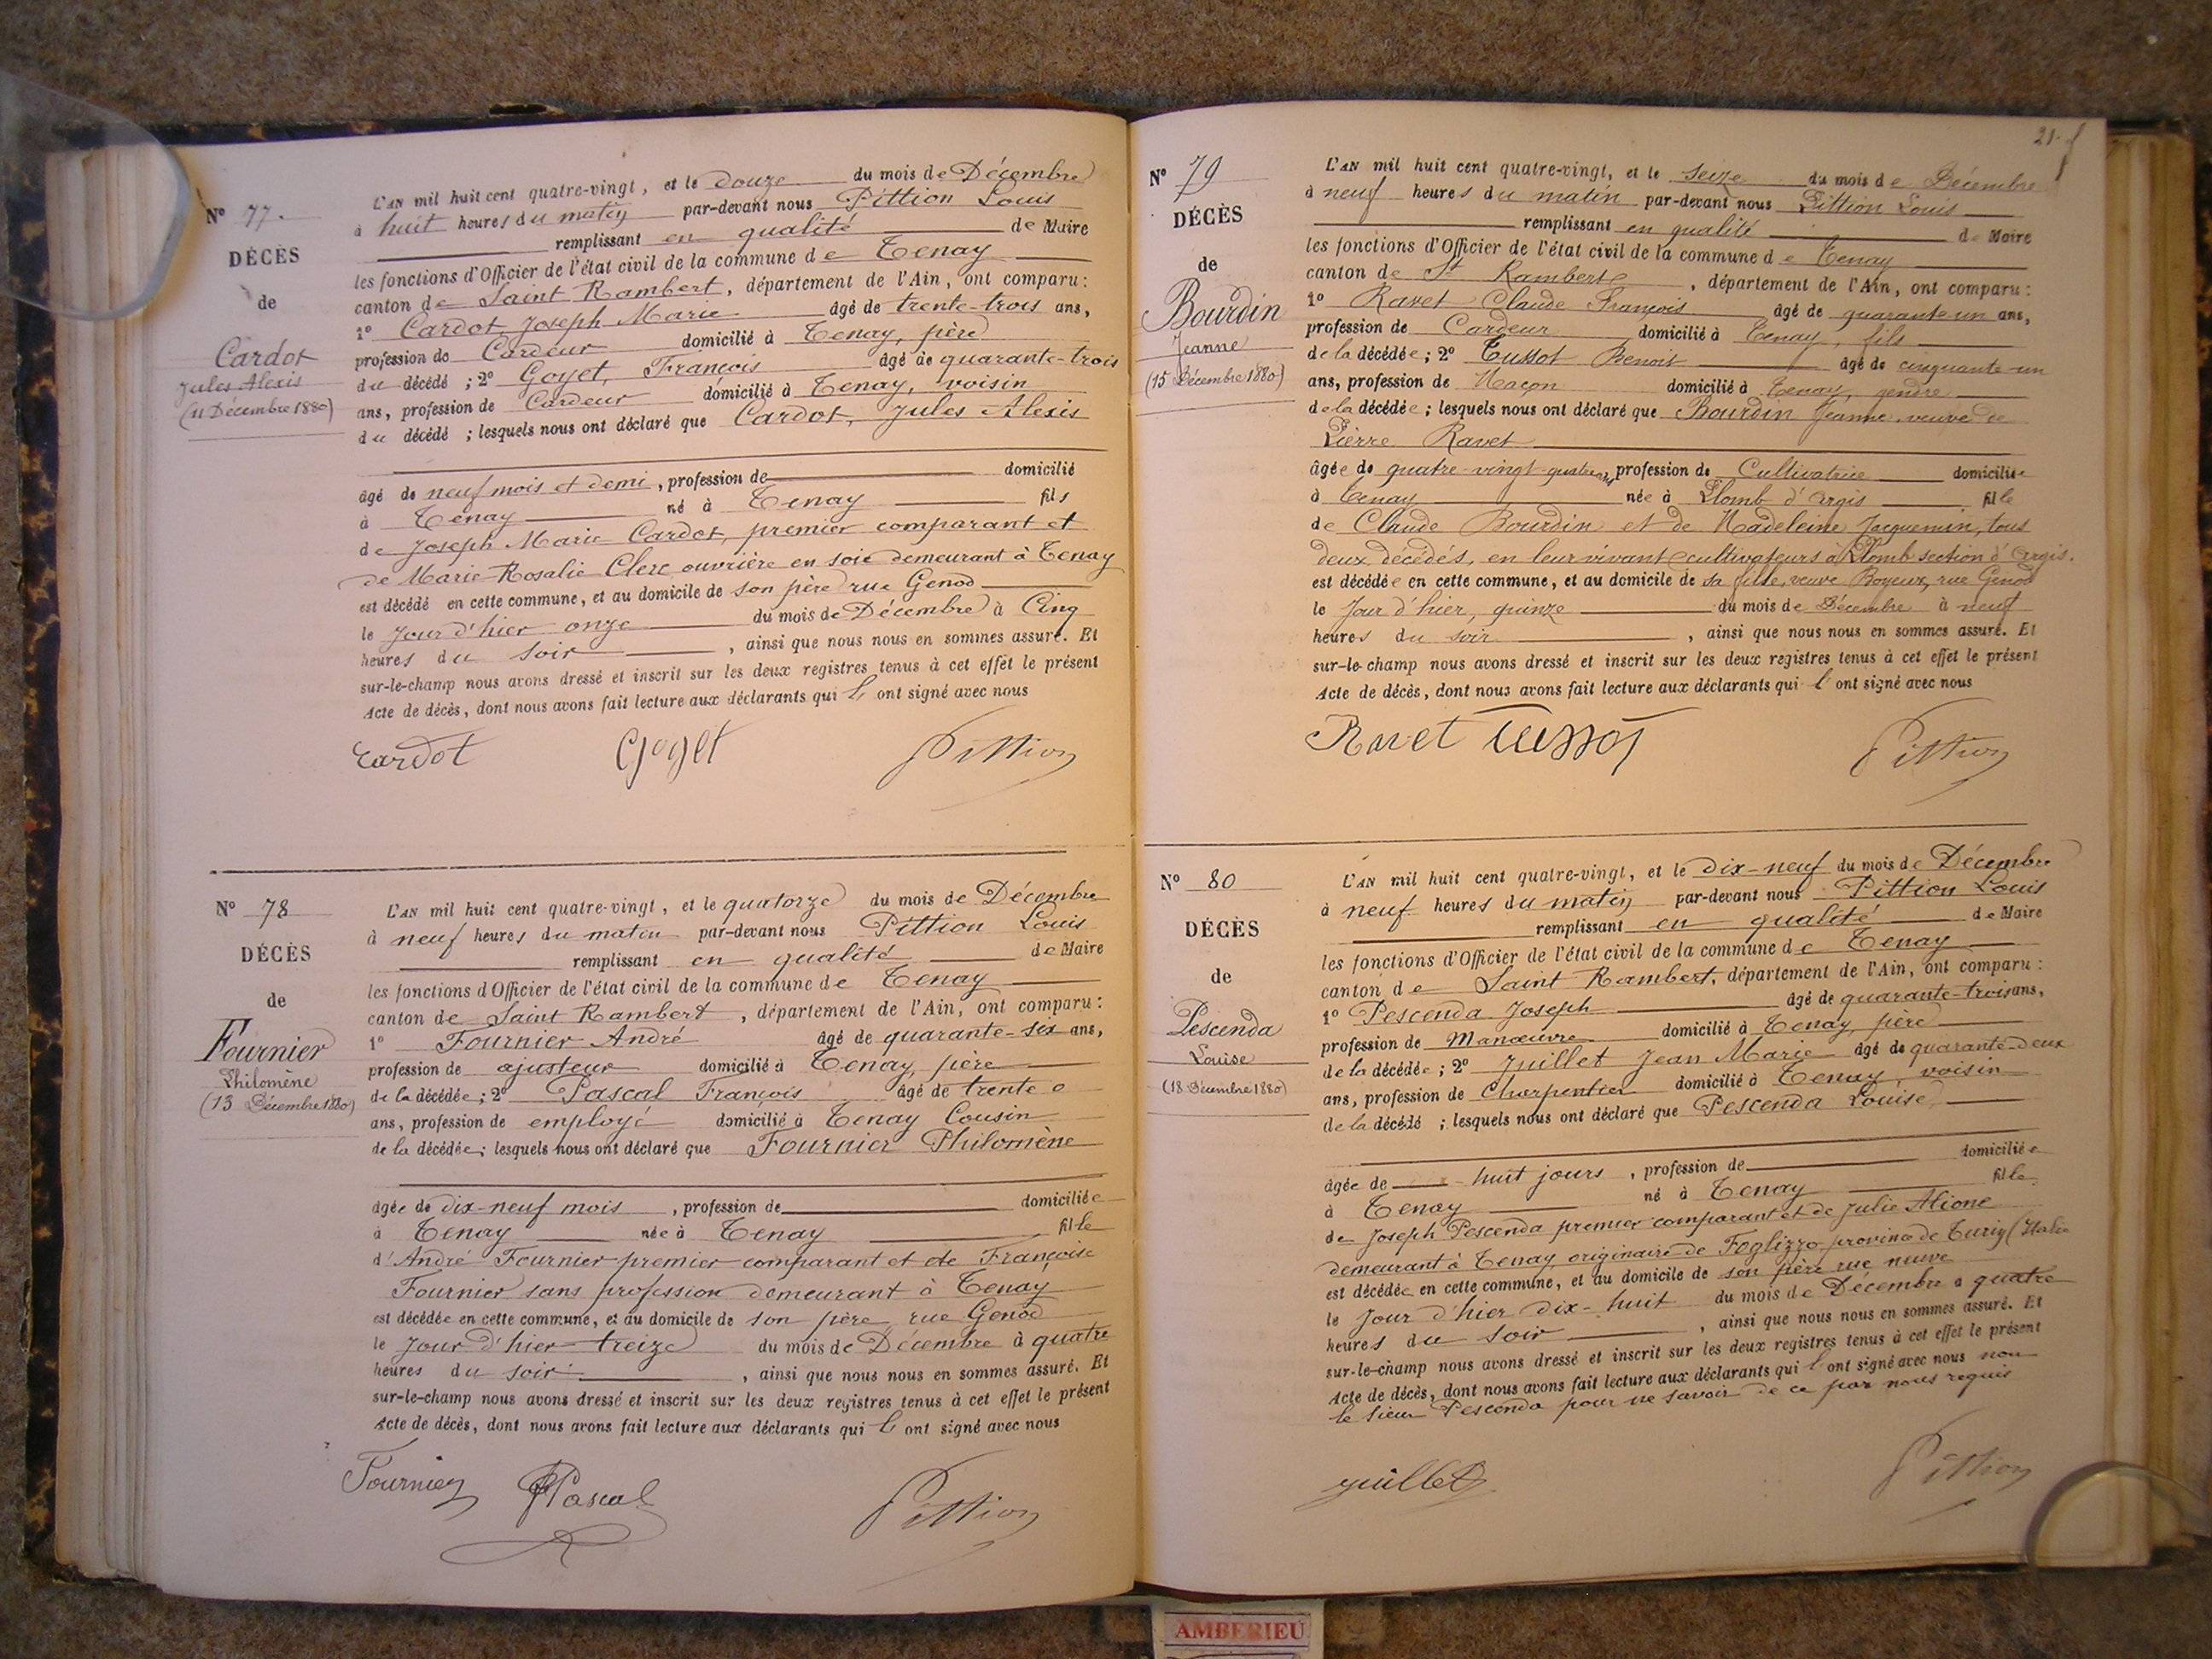 N° 77.
DÉCÈS
de
Cardot
Jules Alexis
(11 Décembre 1880)
L'AN mil huit cent quatre-vingt, et le douze du mois de Décembre
à huit heures du matin par-devant nous Pittion Louis
remplissant en qualité de Maire
les fonctions d'Officier de l'état civil de la commune de Tenay
canton de Saint Rambert, département de l'Ain, ont comparu:
1° Cardot Joseph Marie âgé de trente-trois ans,
profession de Cardeur domicilié à Tenay, père
du décédé ; 2° Goyet, François âgé de quarante-trois
ans, profession de Cardeur domicilié à Tenay, voisin
du décédé ; lesquels nous ont déclaré que Cardot, Jules Alexis
âgé de neuf mois et demi, profession de domicilié
à Tenay né à Tenay fils
de Joseph Marie Cardot, premier comparant et
de Marie Rosalie Clerc ouvrière en soie demeurant à Tenay
est décédé en cette commune, et au domicile de son père rue Genod
le jour d'hier onze du mois de Décembre à Cinq
heures du soir , ainsi que nous nous en sommes assuré. Et
sur-le-champ nous avons dressé et inscrit sur les deux registres tenus à cet effet le présent
Acte de décès, dont nous avons fait lecture aux déclarants qui l' ont signé avec nous
Cardot Goyet Pittion
N° 78
DÉCÈS
de
Fournier
Philomène
(13 Décembre 1880)
L'AN mil huit cent quatre-vingt, et le quatorze du mois de Décembre
à neuf heures du matin par-devant nous Pittion Louis
remplissant en qualité de Maire
les fonctions d'Officier de l'état civil de la commune de Tenay
canton de Saint Rambert , département de l'Ain, ont comparu:
1° Fournier André âgé de quarante-six ans,
profession de ajusteur domicilié à Tenay, père
de la décédée ; 2° Pascal François âgé de trente
ans, profession de employé domicilié à Tenay Cousin
de la décédée ; lesquels nous ont déclaré que Fournier Philomène
âgée de dix-neuf mois , profession de domiciliée
à Tenay née à Tenay fille
d'André Fournier premier comparant et de Françoise
Fournier sans profession demeurant à Tenay
est décédée en cette commune, et au domicile de son père rue Genod
le Jour d'hier treize du mois de Décembre à quatre
heures du soir , ainsi que nous nous en sommes assuré. Et
sur-le-champ nous avons dressé et inscrit sur les deux registres tenus à cet effet le présent
Acte de décès, dont nous avons fait lecture aux déclarants qui l' ont signé avec nous
Fournier Pascal Pittion
21.
N° 79
DÉCÈS
de
Bourdin
Jeanne
(15 Décembre 1880)
L'AN mil huit cent quatre-vingt, et le seize du mois de Décembre
à neuf heures du matin par-devant nous Pittion Louis
remplissant en qualité de Maire
les fonctions d'Officier de l'état civil de la commune de Tenay
canton de St Rambert , département de l'Ain, ont comparu:
1° Ravet Claude François âgé de quarante-un ans,
profession de Cardeur domicilié à Tenay, fils
de la décédée ; 2° Tussot Benoit âgé de cinquante-un
ans, profession de Maçon domicilié à Tenay, gendre
de la décédée ; lesquels nous ont déclaré que Bourdin Jeanne veuve de
Pierre Ravet
âgée de quatre-vingt-quatre ans profession de Cultivatrice domiciliée
à Tenay née à Plomb d'Argis fille
de Claude Bourdin et de Madeleine Jacquemin, tous
deux décédés, en leur vivant cultivateurs à Plomb section d'Argis.
est décédée en cette commune, et au domicile de sa fille, veuve Boyeux, rue Genod
le Jour d'hier, quinze du mois de Décembre à neuf
heures du soir , ainsi que nous nous en sommes assuré. Et
sur-le-champ nous avons dressé et inscrit sur les deux registres tenus à cet effet le présent
Acte de décès, dont nous avons fait lecture aux déclarants qui l' ont signé avec nous
Ravet Tussot Pittion
N° 80
DÉCÈS
de
Pescenda
Louise
(18 Décembre 1880)
L'AN mil huit cent quatre-vingt, et le dix-neuf du mois de Décembre
à neuf heures du matin par-devant nous Pittion Louis
remplissant en qualité de Maire
les fonctions d'Officier de l'état civil de la commune de Tenay
canton de Saint Rambert, département de l'Ain, ont comparu:
1° Pescenda Joseph âgé de quarante-trois ans,
profession de Manœuvre domicilié à Tenay, père
de la décédée ; 2° Juillet Jean Marie âgé de quarante-deux
ans, profession de Charpentier domicilié à Tenay, voisin
de la décédé ; lesquels nous ont déclaré que Pescenda Louise
âgée de huit jours , profession de domiciliée
à Tenay né à Tenay fille
de Joseph Pescenda premier comparant et de Julie Alione
demeurant à Tenay originaire de Foglizzo province de Turin (Italie
est décédée en cette commune, et au domicile de son père rue neuve
le Jour d'hier dix-huit du mois de Décembre à quatre
heures du soir , ainsi que nous nous en sommes assuré. Et
sur-le-champ nous avons dressé et inscrit sur les deux registres tenus à cet effet le présent
Acte de décès, dont nous avons fait lecture aux déclarants qui l' ont signé avec nous non
le sieur Pescenda pour ne savoir de ce par nous requis
Juillet Pittion
AMBERIEU